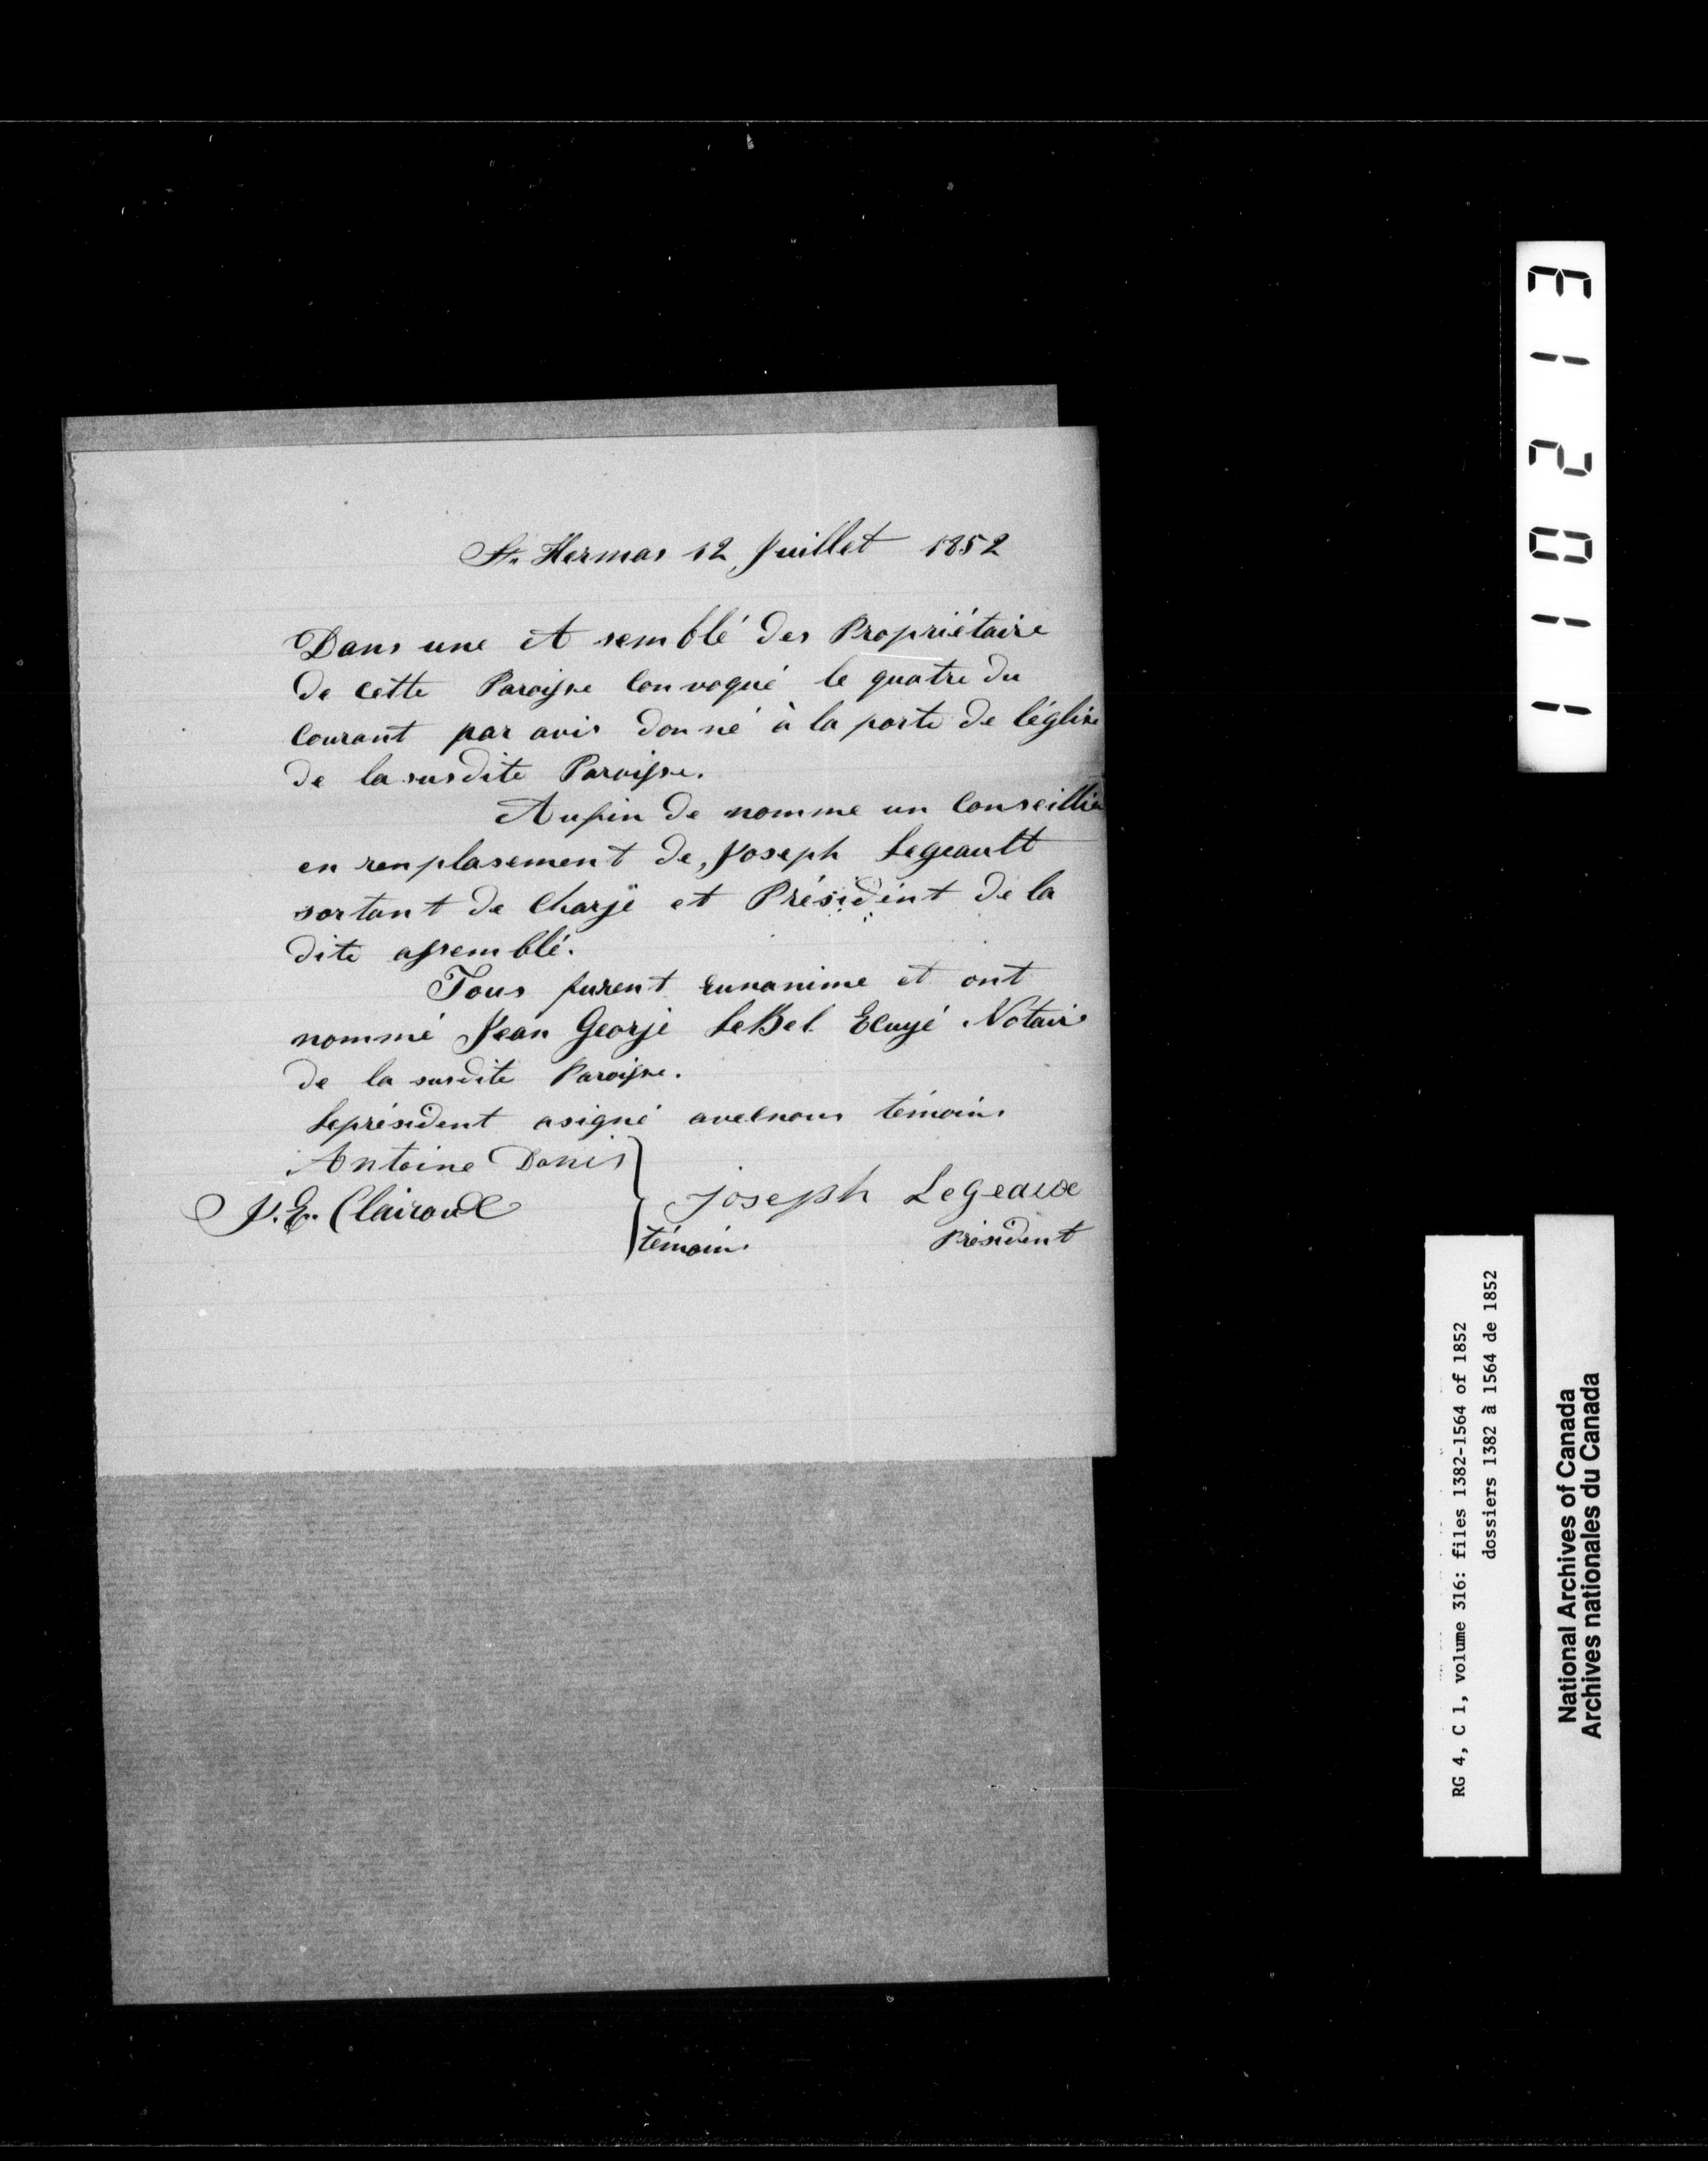 St. Hermas 12 Juillet 1852
Dans une A semblé des Propriétaire
de cette Paroisse Convoqué le quatre du
Courant par avis donné à la porte de léglise
de la susdite Paroisse.
Aufin de nomme un Conseillier
en renplasement de Joseph Legeault
sortant de Charje et Président de la
dite assemblé.
Tous furent eunanime et ont
nommé Jean Georje LeBel Ecuyé Notair
de la susdite Paroisse.
Leprésident asigné avecnous témoins
Antoine Danis
J. E. Clairoux
Joseph Legeaux
témoins
Président
E 1 2 0 1 1
RG 4, C 1, volume 316: files 1382-1564 of 1852
dossiers 1382 à 1564 de 1852
National Archives of Canada
Archives nationales du Canada